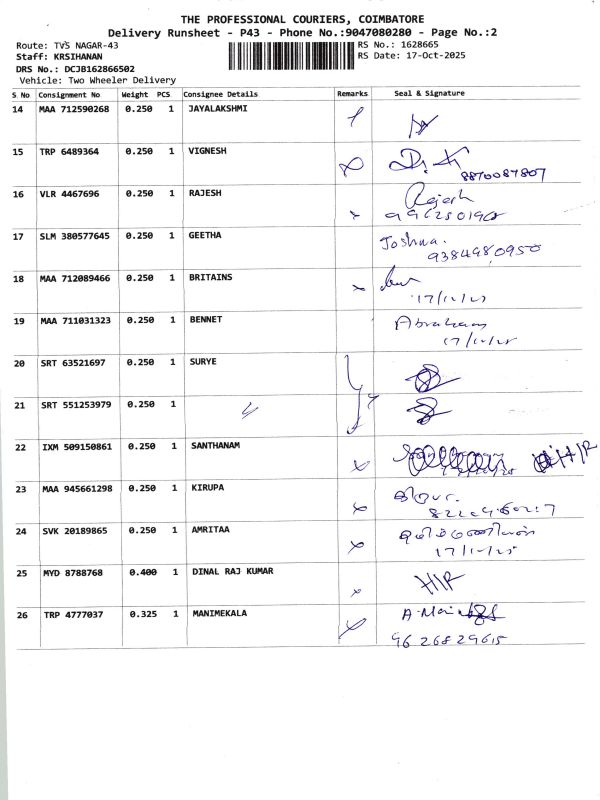 THE PROFESSIONAL COURIERS, COIMBATORE
Delivery Runsheet - P43 - Phone No.:9047080280 - Page No.:2
Route: TVS NAGAR-43
RS No.: 1628665
Staff: KRSIHANAN
RS Date: 17-Oct-2025
DRS No.: DCJB162866502
Vehicle: Two Wheeler Delivery
S No Consignment No Weight PCS Consignee Details Remarks Seal & Signature
14 MAA 712590268 0.250 1 JAYALAKSHMI
15 TRP 6489364 0.250 1 VIGNESH
8870087807
16 VLR 4467696 0.250 1 RAJESH Rajesh
17 SLM 380577645 0.250 1 GEETHA Joshua.
9384980950
18 MAA 712089466 0.250 1 BRITAINS
19 MAA 711031323 0.250 1 BENNET Abraham
20 SRT 63521697 0.250 1 SURYE
21 SRT 551253979 0.250 1
22 IXM 509150861 0.250 1 SANTHANAM H/R
23 MAA 945661298 0.250 1 KIRUPA கிருபா.
24 SVK 20189865 0.250 1 AMRITAA
25 MYD 8788768 0.400 1 DINAL RAJ KUMAR H/R
26 TRP 4777037 0.325 1 MANIMEKALA
9626829615